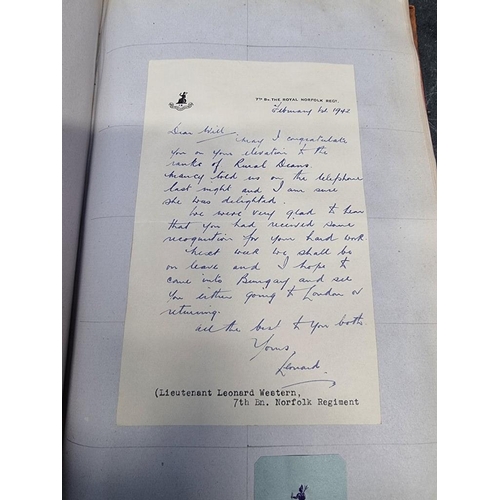 7TH BN. THE ROYAL NORFOLK REGT.
February 1st. 1942
Dear Will
May I congratulate
you on your elevation to the
ranks of Rural Deans.
Nancy told us on the telephone
last night and I am sure
she was delighted.
We were very glad to hear
that you had received some
recognition for your hard work
Next week we shall be
on leave and I hope to
come into Bungay and see
you either going to London or
returning.
All the best to you both
Yours
Leonard.
(Lieutenant Leonard Western,
7th Bn. Norfolk Regiment